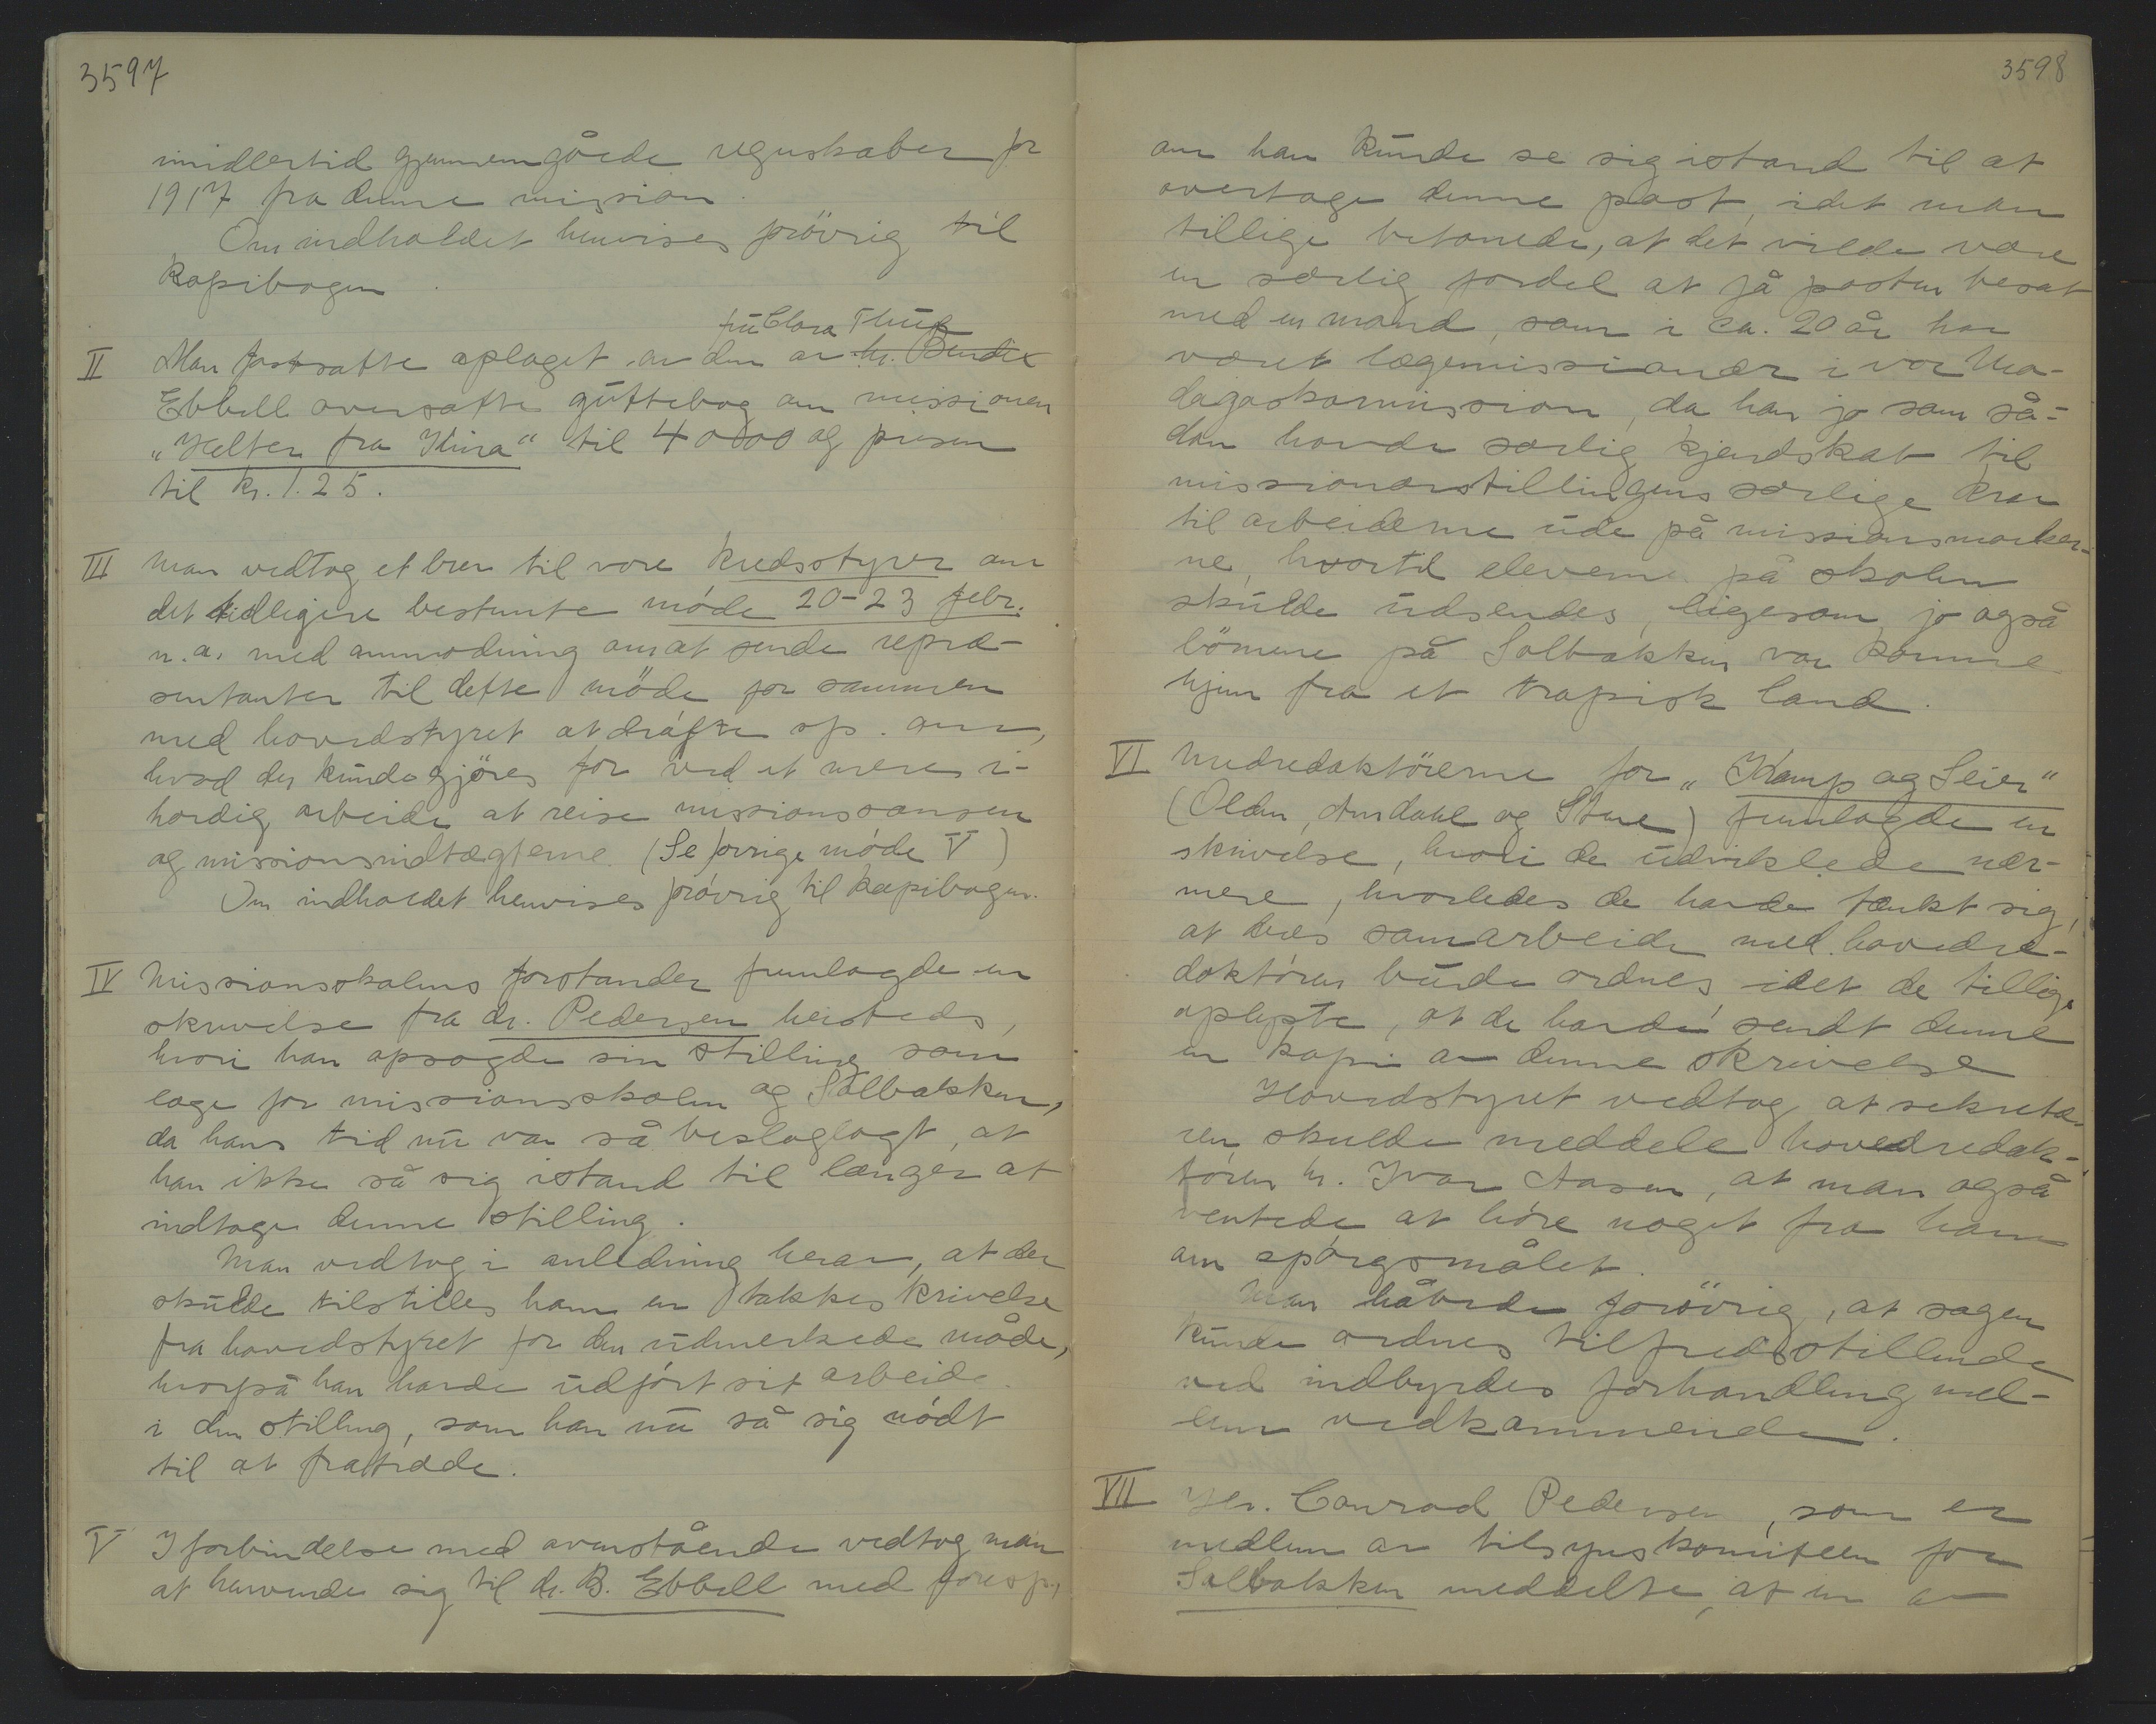 3597
imidlertid gjennemgåede regnskaber for
1917 fra denne mission.
Om indholdet henvises forövrig til
kopibogen.
frü Clara Thüe
II Man fastsatte oplaget av den av hr. Bendix
Ebbell oversatte güttebog om missionen
"Helten fra Kina" til 4000 og prisen
til kr. 1.25.
III Man vedtog et brev til vore kredsstyrer om
det tidligere bestemte möde 20-23 febr.
n.a. med anmodning om at sende repræ-
sentanter til dette möde for sammen
med hovedstyret at dröfte sp. om,
hvad der künde gjöres for ved et mere i-
hærdig arbeide at reise missionssansen
og missionsindtægterne. (Se forrige möde V)
Om indholdet henvises forövrig til kopibogen.
IV Missionsskolens forstander fremlagde en
skrivelse fra dr. Pedersen heisteds,
hvori han opsagde sin stilling som
læge for missionsskolen og Solbakken,
da hans tid nü var så beslaglagt, at
han ikke så sig istand til længer at
indtage denne stilling.
Man vedtog i anledning herav, at der
skülde tilstilles ham en takkeskrivelse
fra hovedstyret for den üdmerkede måde,
hvorpå han havde üdfört sit arbeide
i den stilling, som han nü så sig nödt
til at fratræde.
V I forbindelse med ovenstående vedtog man
at henvende sig til dr. B. Ebbell med foresp.,
3598
om han künde se sig istand til at
overtage denne post, idet man
tillige betonede, at det vilde være
en særlig fordel at få posten besat
med en mand, som i ca. 20 år har
været lægemissionær i vor Ma-
dagaskarmission, da han jo som så-
dan havde særlig kjendskab til
missionærstillingens særlige krav
til arbeiderne üde på missionsmarker-
ne, hvortil eleverne på skolen
skülde üdsendes, ligesom jo også
börnene på Solbakken var komne
hjem fra et tropisk land.
VI Medredaktörerne for "Kamp og Seier"
(Olden, Amdahl og Stene) fremlagde en
skrivelse, hvori de üdviklede nær-
mere, hvorledes de havde tænkt sig,
at deres samarbeide med hovedre-
daktören bürde ordnes, idet de tillige
oplyste, at de havde sendt denne
en kopi av denne skrivelse
Hovedstyret vedtog at sekretæ-
ren skulde meddele hovedredak-
tören hr. Ivar Aasen, at man også
ventede at höre noget fra ham
om spörgsmålet.
Man håbede forövrig, at sagen
künde ordnes tilfredsstillende
ved indbyrdes forhandling mel-
lem vedkommende.
VII Hr. Conrad Pedersen, som er
medlem av tilsynskomiteen for
Solbakken meddelte, at en av